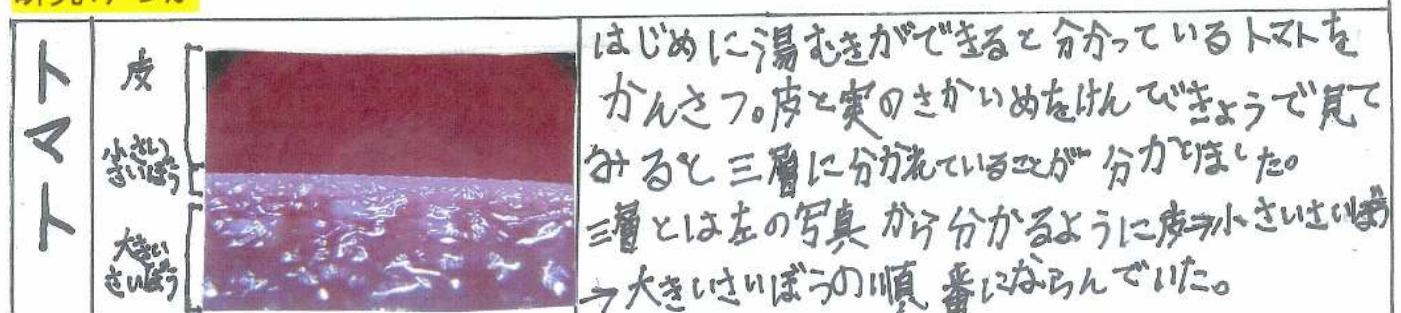 トマト
皮
小さい
さいぼう
大きい
さいぼう
はじめに湯むきができると分かっているトマトを
かんさつ。皮と実のさかいめをけんびきょうで見て
みると三層に分かれていることが分かりました。
三層とは左の写真から分かるように皮→小さいさいぼう
→大きいさいぼうの順番にならんでいた。